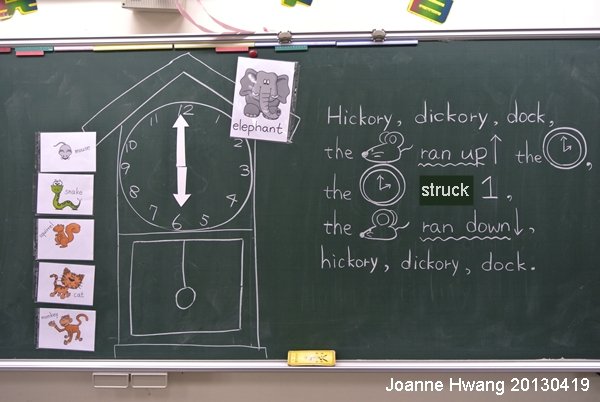 elephant
mouse
snake
squirrel
cat
monkey
12
11 1
10 2
9 3
8 4
7 5
6
Hickory, dickory, dock,
the ran up the ,
the struck 1,
the ran down,
hickory, dickory, dock.
Joanne Hwang 20130419